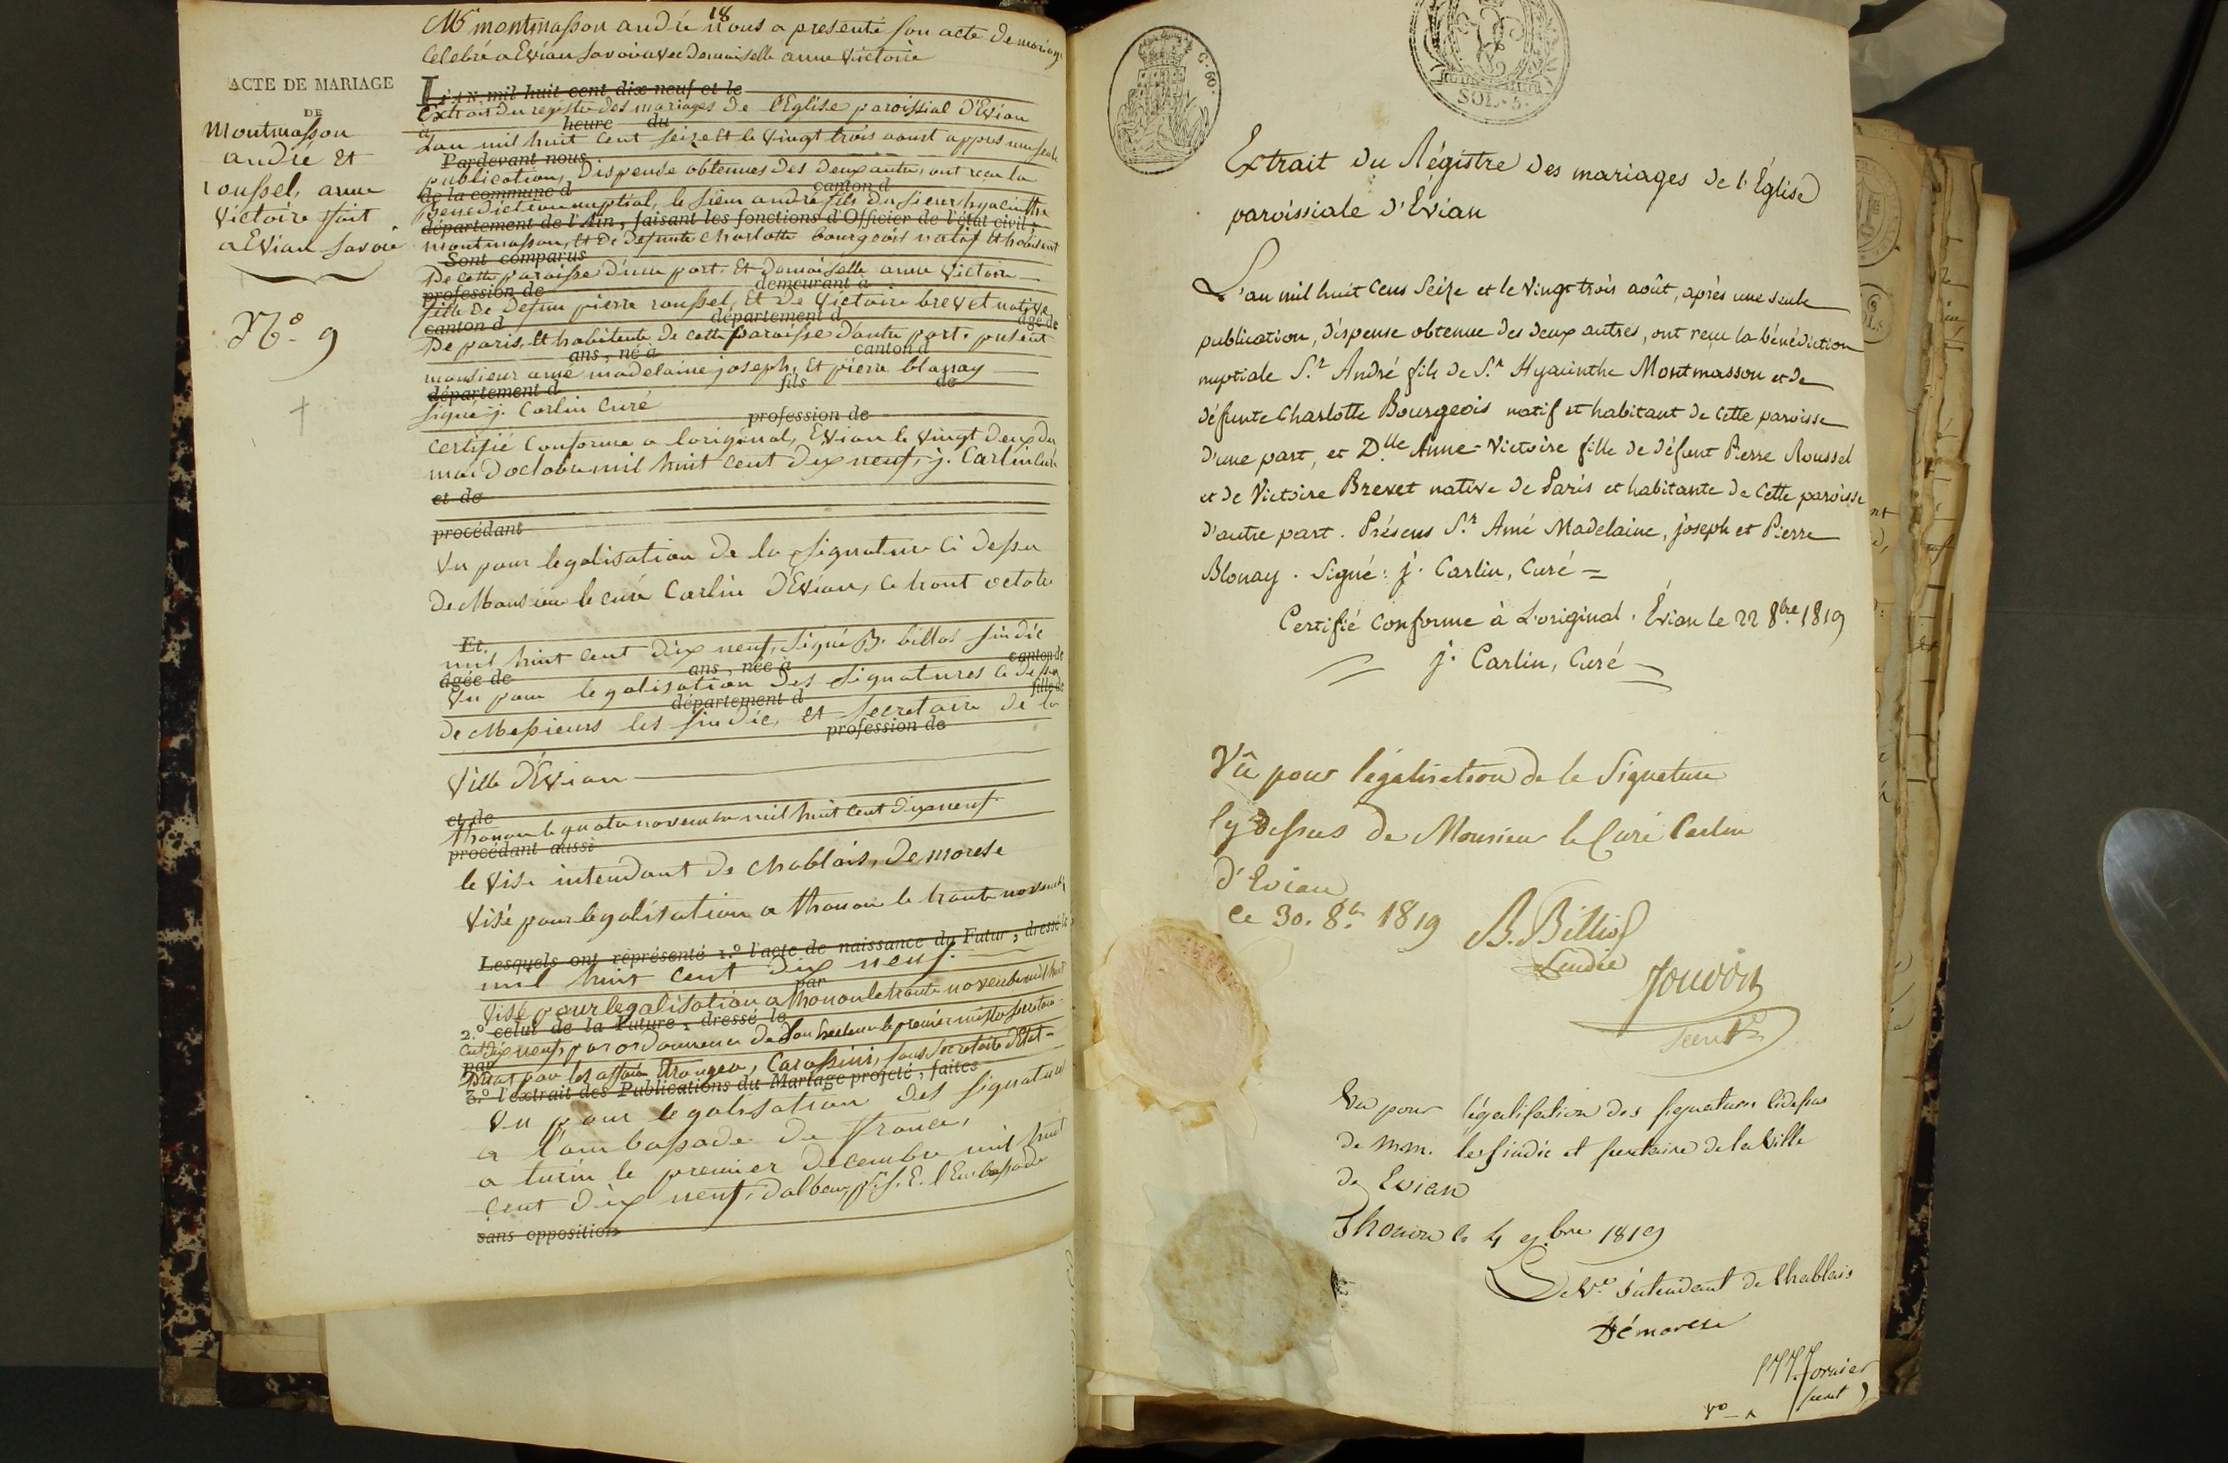 18
Mr montmasson andré nous a presenté son acte de mariage
celebré a Evian Savoie avec demoiselle anne Victoire
ACTE DE MARIAGE
DE
Montmasson
andré et
roussel, anne
Victoire fait
a Evian Savoie
No. 9
L'AN mil huit cent dix-neuf et le
Extrait du registre des mariages de l'Eglise paroissial d'Evian
à heure du
L'an mil huit cent seize et le vingt trois aoust appres une seule
Pardevant nous
publication, dispense obtenues des deux autres, ont reçu la
de la commune d canton d
benediction nuptial, le sieur andré fils du sieur hyacinthe
département de l'Ain, faisant les fonctions d'Officier de l'état civil;
montmasson, et de defunte charlotte bourgeois natif et habitant
Sont comparus
De cette paroisse d'une part. Et demoiselle anne Victoire
profession de demeurant à
fille de defun pierre roussel, et de Victoire brevet native
canton d département d âgé de
De paris, et habitante de cette paroisse d'autre part. present
ans, né à canton d
monsieur amé madelaine joseph, et pierre blonay
département d fils de
signé j. Carlin curé
profession de
certifié conforme a l'original, Evian le vingt deux du
mois d'octobre mil huit cent dix neuf, j. Carlin curé
et de
procédant
Vu pour legalisation de la signature ci dessu
de Monsieur le curé Carlin d'Evian, ce tront octobre
Et
mil huit cent dix neuf, signé B. billiod sindic
âgée de ans, née à canton de
Vu pour legalisation des signatures ci dessu
département d fille de
de Messieurs les sindic, et secretaire de la
profession de
Ville d'Evian
et de
thonon le quatre novembre mil huit cent dix neuf
procédant aussi
le Vise intendant de chablais, de morese
Visé pour legalisation a thonon le trante novembre
Lesquels ont représenté 1.º l'acte de naissance du Futur, dressé le
mil huit cent dix neuf.
par
Visé pour legalisation a thonon le trante novembre mil huit
2.º celui de la Future, dressé le
cent dix neuf, par ordonnance de Son Excellence le premier
par
d'Etat pour les affaire Etrangere, Carossini, sous secretaire d'Etat
3.º l'extrait des Publications du Mariage projeté, faites
Vu pour legalisation des signatures
a l'ambassade de france,
a turin le premier decembre mil huit
cent dix neuf,
sans opposition
SOL. 5.
Extrait du Régistre des mariages de l'Église
paroissiale d'Evian
L'an mil huit cens seize et le vingt trois août, après une seule
publication, dispense obtenue des deux autres, ont reçu la bénédiction
nuptiale S.r André fils de S.r Hyacinthe Montmasson et de
défunte Charlotte Bourgeois natif et habitant de cette paroisse
d'une part, et D.lle Anne-Victoire fille de défunt Pierre Roussel
et de Victoire Brevet native de Paris et habitante de cette paroisse
d'autre part. Présens S.r Amé Madelaine, joseph et Pierre
Blonay. Signé: j. Carlin, Curé =
Certifié conforme à L'original. Évian le 22 8bre 1819
j. Carlin, Curé
Vû pour légalisation de la Signature
cy dessus de Monsieur le Curé Carlin
d'Evian
ce 30. 8bre 1819 B. Billiod
Sindic
Vu pour légalisation des signatures cidessus
de MM. les sindic et secretaire de la Ville
de Evian
Thonon le 4 9.bre 1819
Le V.e intendant de Chablais
Démorese